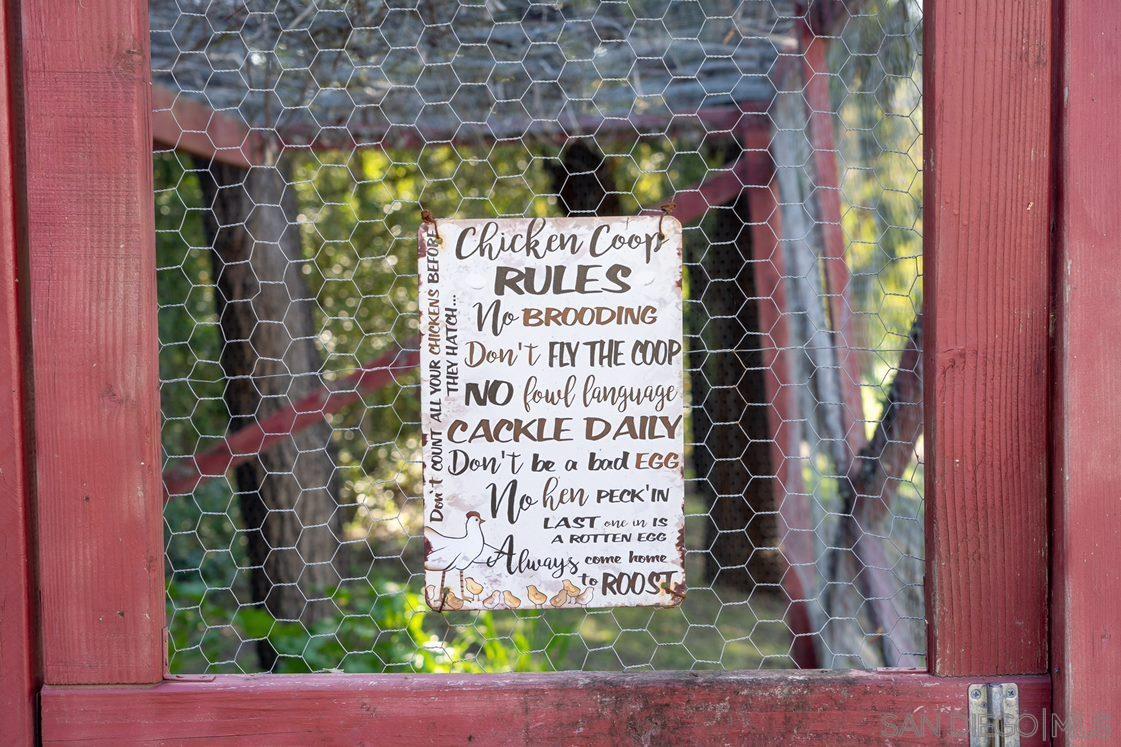 Chicken Coop
RULES
No BROODING
Don't FLY THE COOP
NO fowl language
CACKLE DAILY
Don't be a bad EGG
No hen PECK'IN
LAST one in IS
A ROTTEN EGG
Always come home
to ROOST
DON'T COUNT ALL YOUR CHICKENS BEFORE
THEY HATCH...
SAN DIEGO|MLS